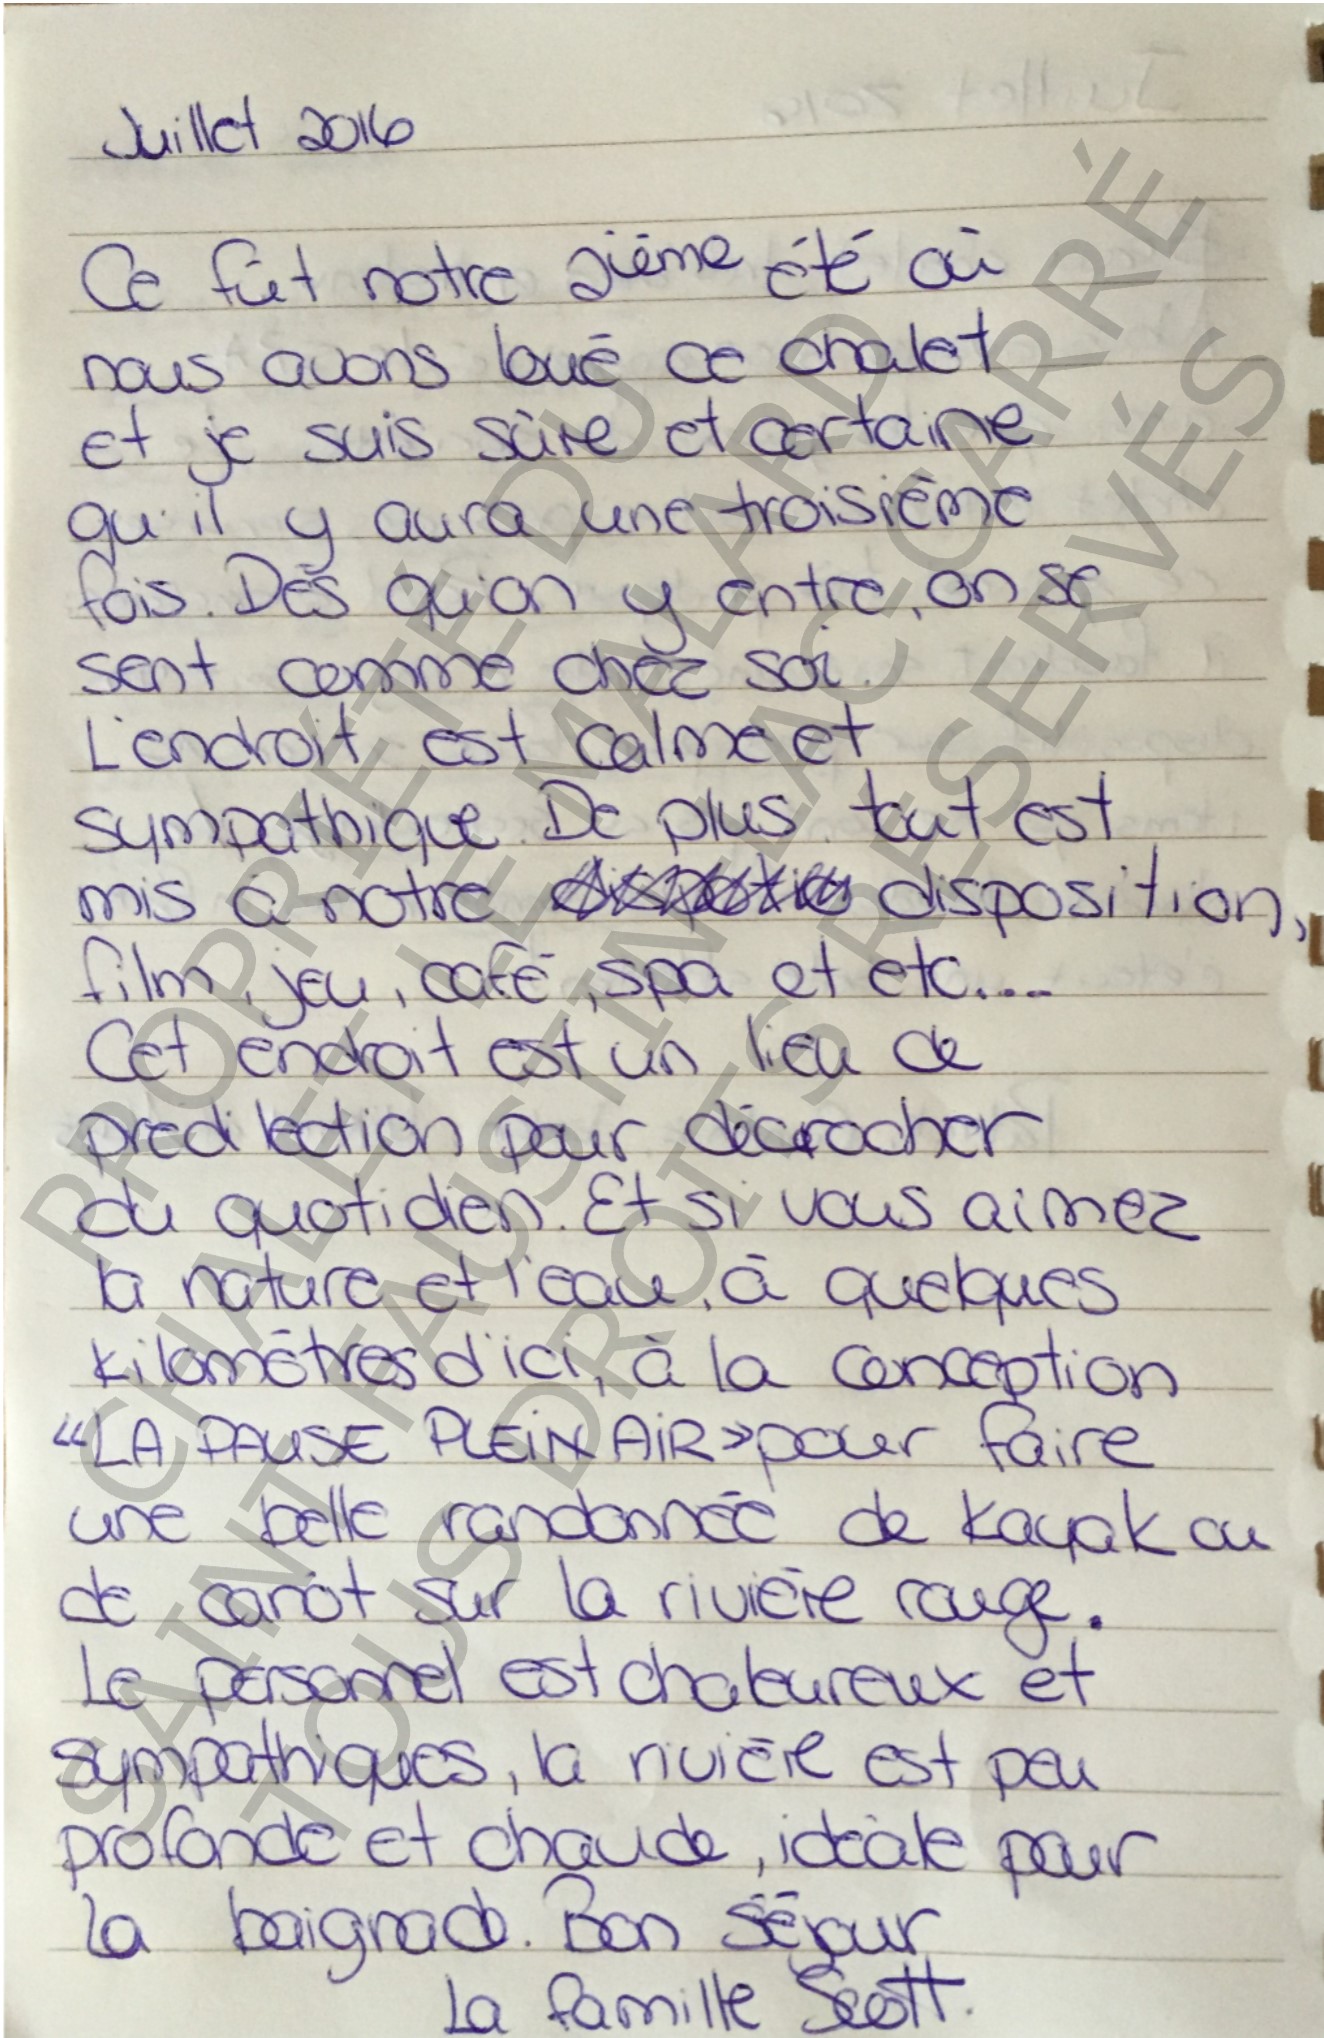 Juillet 2016
Ce fût notre 2ième été où
nous avons loué ce chalet
et je suis sûre et certaine
qu'il y aura une troisième
fois. Dès qu'on y entre, on se
sent comme chèz soi.
L'endroit est calme et
sympathique. De plus tout est
mis à notre disposition,
film, jeu, café, spa et etc....
Cet endroit est un lieu de
predilection pour décrocher
du quotidien. Et si vous aimez
la nature et l'eau, à quelques
kilomètres d'ici, à la conception
"LA PAUSE PLEIN AIR» pour faire
une belle randonnée de kayak ou
de canôt sur la rivière rouge.
Le personnel est chaleureux et
sympathiques, la rivière est peu
profonde et chaude, idéale pour
la baignade. Bon séjour
La famille Scott.
PROPRIÉTÉ DU
CHALET LE MALARD
SAINT FAUSTIN LAC CARRÉ
TOUS DROITS RÉSERVÉS